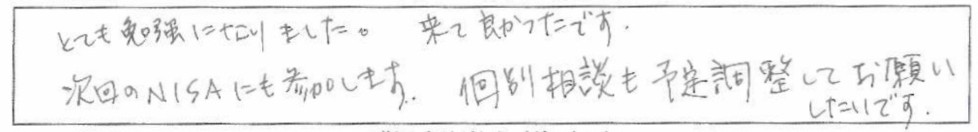 とても勉強になりました。 来て良かったです.
次回のNISAにも参加します. 個別相談も予定調整してお願い
したいです.